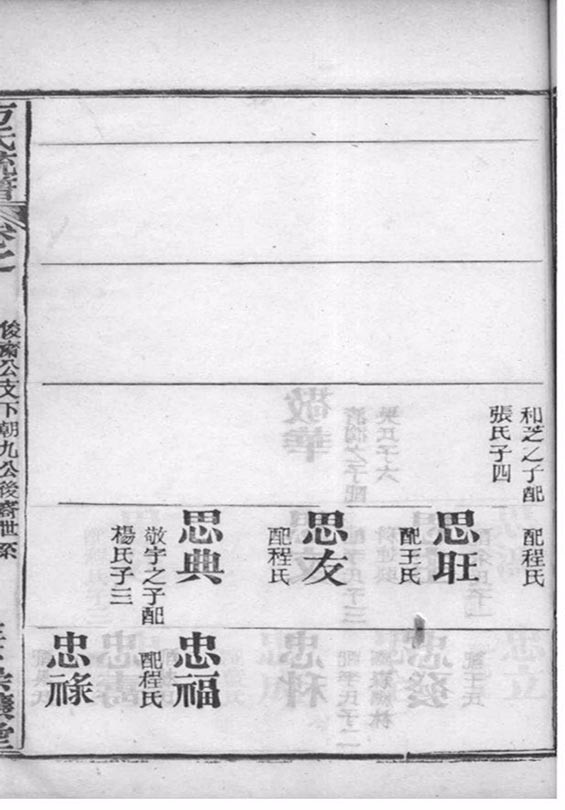 和芝之子配
張氏子四
配程氏
思旺
配王氏
思友
配程氏
思典
敬宇之子配
楊氏子三
忠福
配程氏
忠祿
方氏統譜
卷之
俊齋公支下朝九公後裔世系